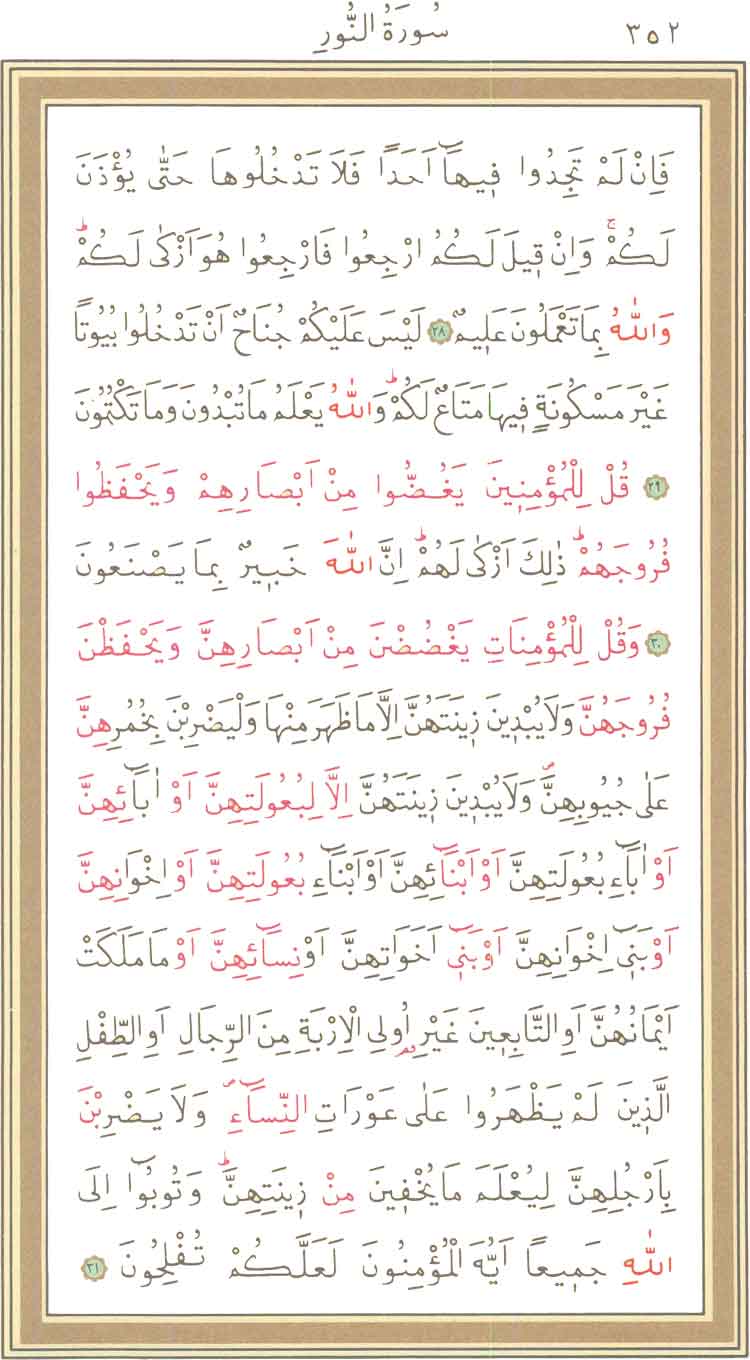 سُورَةُ النُّورِ ٣٥٢
فَاِنْ لَمْ تَجِدُوا فٖيهَٓا اَحَدًا فَلَا تَدْخُلُوهَا حَتّٰى يُؤْذَنَ
لَكُمْۚ وَاِنْ قٖيلَ لَكُمُ ارْجِعُوا فَارْجِعُوا هُوَ اَزْكٰى لَكُمْؕ
وَاللّٰهُ بِمَا تَعْمَلُونَ عَلٖيمٌ ٢٨ لَيْسَ عَلَيْكُمْ جُنَاحٌ اَنْ تَدْخُلُوا بُيُوتًا
غَيْرَ مَسْكُونَةٍ فٖيهَا مَتَاعٌ لَكُمْؕ وَاللّٰهُ يَعْلَمُ مَا تُبْدُونَ وَمَا تَكْتُمُونَ
٢٩ قُلْ لِلْمُؤْمِنٖينَ يَغُضُّوا مِنْ اَبْصَارِهِمْ وَيَحْفَظُوا
فُرُوجَهُمْؕ ذٰلِكَ اَزْكٰى لَهُمْؕ اِنَّ اللّٰهَ خَبٖيرٌ بِمَا يَصْنَعُونَ
٣٠ وَقُلْ لِلْمُؤْمِنَاتِ يَغْضُضْنَ مِنْ اَبْصَارِهِنَّ وَيَحْفَظْنَ
فُرُوجَهُنَّ وَلَا يُبْدٖينَ زٖينَتَهُنَّ اِلَّا مَا ظَهَرَ مِنْهَا وَلْيَضْرِبْنَ بِخُمُرِهِنَّ
عَلٰى جُيُوبِهِنَّࣕ وَلَا يُبْدٖينَ زٖينَتَهُنَّ اِلَّا لِبُعُولَتِهِنَّ اَوْ اٰبَٓائِهِنَّ
اَوْ اٰبَٓاءِ بُعُولَتِهِنَّ اَوْ اَبْنَٓائِهِنَّ اَوْ اَبْنَٓاءِ بُعُولَتِهِنَّ اَوْ اِخْوَانِهِنَّ
اَوْ بَنٖٓى اِخْوَانِهِنَّ اَوْ بَنٖٓى اَخَوَاتِهِنَّ اَوْ نِسَٓائِهِنَّ اَوْ مَا مَلَكَتْ
اَيْمَانُهُنَّ اَوِ التَّابِعٖينَ غَيْرِ اُولِى الْاِرْبَةِ مِنَ الرِّجَالِ اَوِ الطِّفْلِ
الَّذٖينَ لَمْ يَظْهَرُوا عَلٰى عَوْرَاتِ النِّسَٓاءِࣕ وَلَا يَضْرِبْنَ
بِاَرْجُلِهِنَّ لِيُعْلَمَ مَا يُخْفٖينَ مِنْ زٖينَتِهِنَّؕ وَتُوبُٓوا اِلَى
اللّٰهِ جَمٖيعًا اَيُّهَ الْمُؤْمِنُونَ لَعَلَّكُمْ تُفْلِحُونَ ٣١